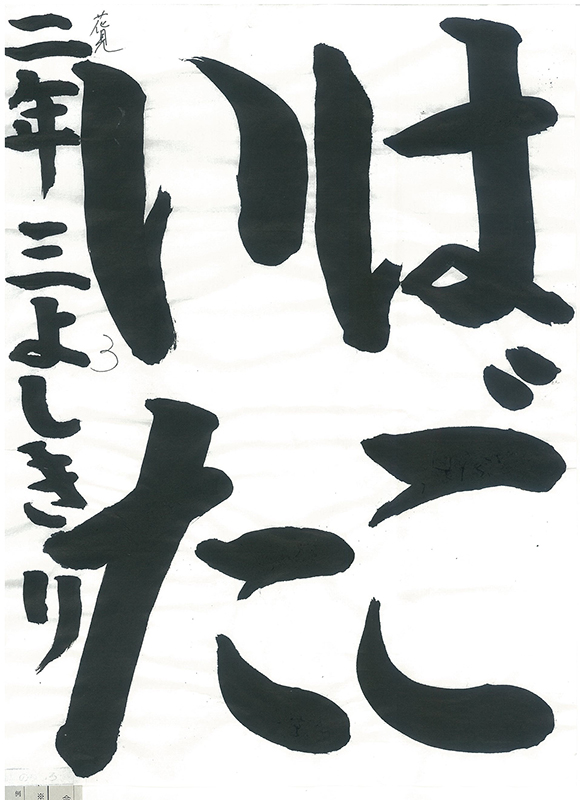 はご
いた
二年 三よしきり
3